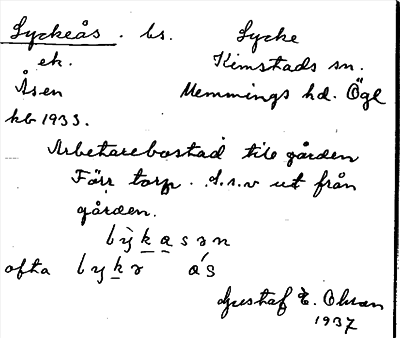 Lyckeås . bs. Lycke
ek. Kimstads sn.
Åsen Memmings hd. Ögl
kb 1933.
Arbetarebostad till gården
Förr torp. d.s.v ut från
gården.
ofta
Gustaf E. Olsson
1937